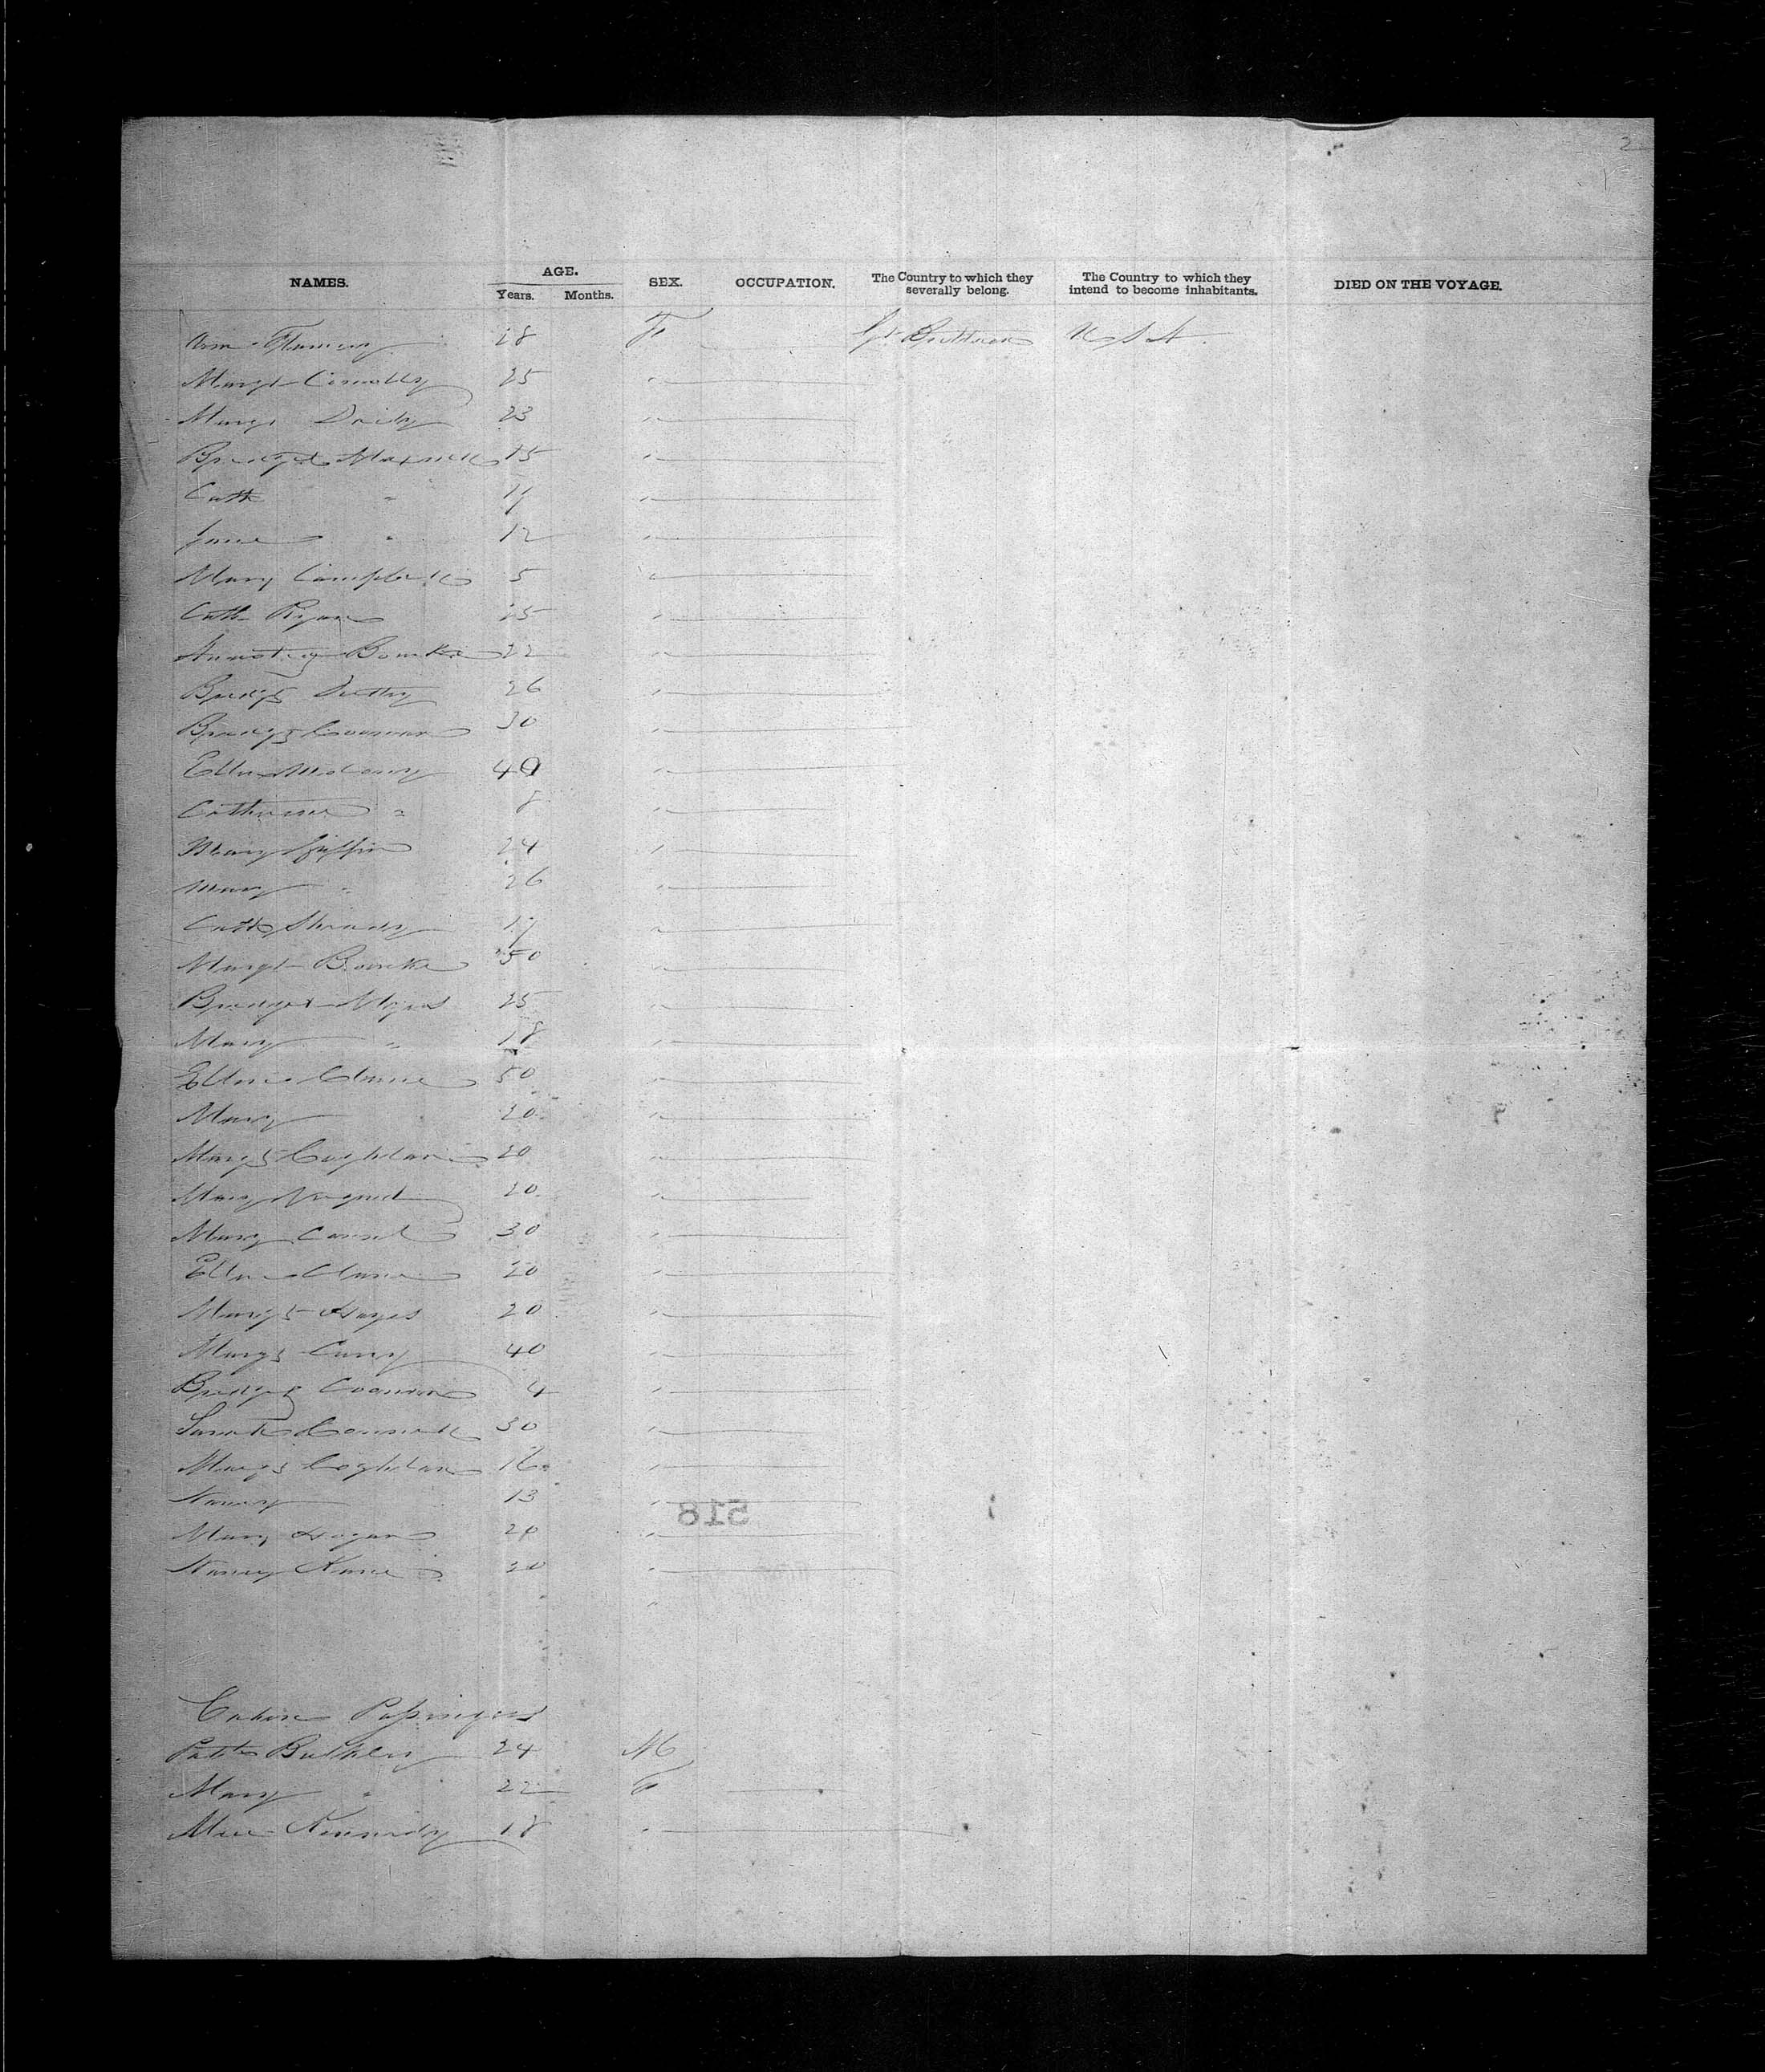 2
NAMES. AGE. SEX. OCCUPATION. The Country to which they severally belong. The Country to which they intend to become inhabitants. DIED ON THE VOYAGE.
Years. Months.
Ann Fleming 18 F Gt Brittain U S A.
Margt Connolly 25 "
Margt 23 "
Bridget Maxwell 15 "
Cath " 17 "
Jane " 12 "
Mary Campbell 5 "
Cath Ryan 25 "
Bourke 22 "
Bridgt 26 "
Bridgt 30 "
Ellen 40 "
Catherine " 8 "
Mary Griffin 24 "
Mary " 26 "
Cath 17 "
Margt Bourke 50 "
Bridget Myers 25 "
Mary " 18 "
Ellen Clune 50 "
Mary 20 "
Margt Coghlan 20 "
Mary 20 "
Mary 30 "
Ellen Clune 20 "
Margt Hayes 20 "
Margt Curry 40 "
Bridget 4 "
Sarah 30 "
Margt Coghlan 16 "
Nancy 13 "
518
Mary Hogan 20 "
Nancy Kane 20 "
"
Cabin Passengers
Patk 24 M
Mary " 22 F
Kennedy 18 "